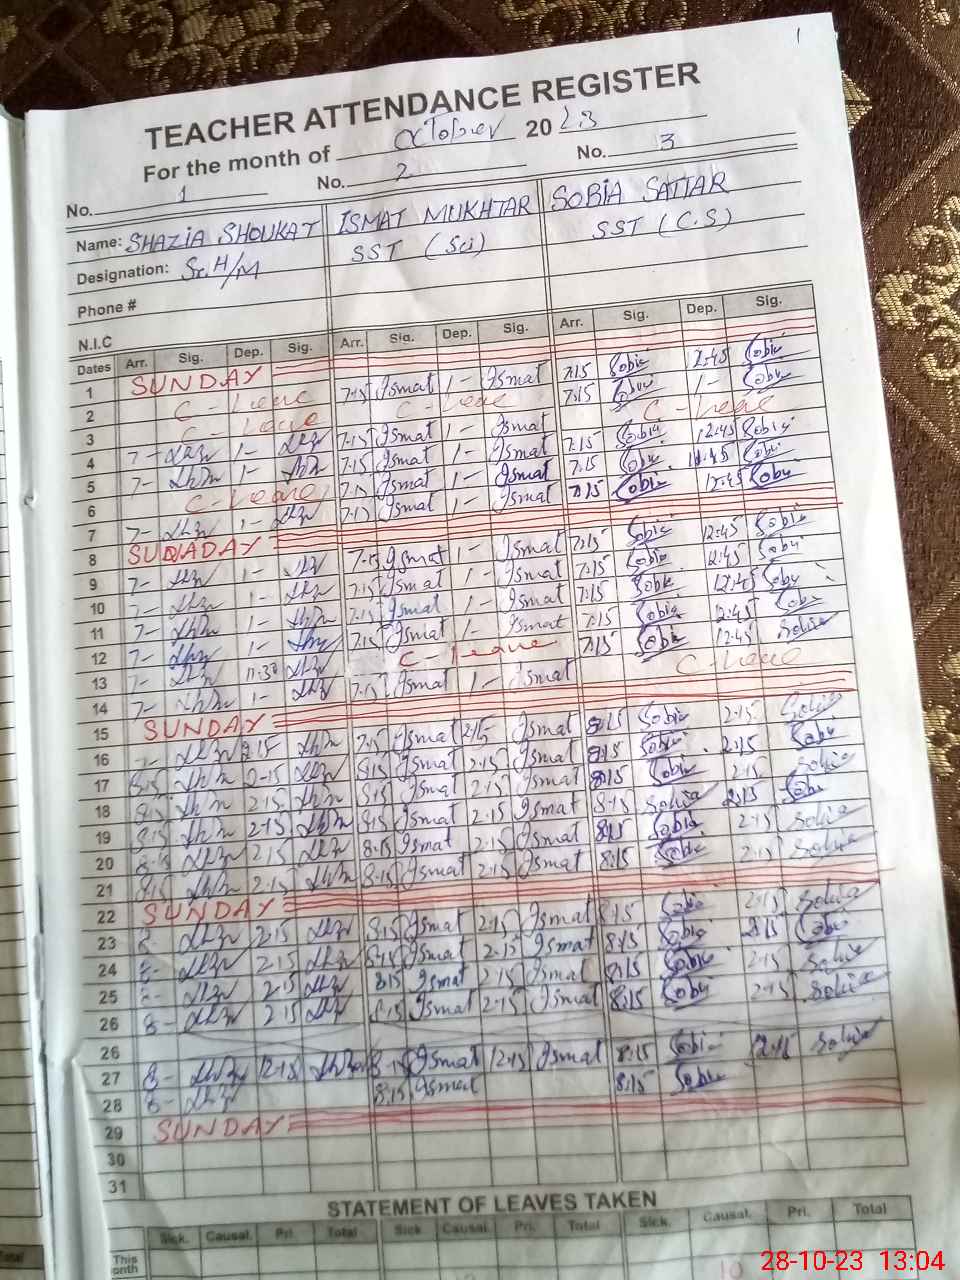 1
TEACHER ATTENDANCE REGISTER
For the month of October 2023
No. 1 No. 2 No. 3
Name: SHAZIA SHOUKAT ISMAT MUKHTAR SOBIA SATTAR
Designation: Sr. H/M SST (Sci) SST (C.S)
Phone #
N.I.C
Dates Arr. Sig. Dep. Sig. Arr. Sig. Dep. Sig. Arr. Sig. Dep. Sig.
1 SUNDAY
2 C - Leave 7:15 Ismat 1- Ismat 7:15 Sobia 12:45 Sobia
3 C - Leave C - Leave 7:15 Sobia 1- Sobia
4 7- 1- 7:15 Ismat 1- Ismat C - Leave
5 7- 1- 7:15 Ismat 1- Ismat 7:15 Sobia 12:45 Sobia
6 C - Leave 7:15 Ismat 1- Ismat 7:15 Sobia Sobia
7 7- 1- 7:15 Ismat 1- Ismat 7:15 Sobia 12:45 Sobia
8 SUNDAY
9 7- 1- 7:15 Ismat 1- Ismat 7:15 Sobia 12:45 Sobia
10 7- 1- 7:15 Ismat 1- Ismat 7:15 Sobia 12:45 Sobia
11 7- 1- 7:15 Ismat 1- Ismat 7:15 Sobia 12:45 Sobia
12 7- 1- 7:15 Ismat 1- Ismat 7:15 Sobia 12:45 Sobia
13 7- 11:30 C - Leave 7:15 Sobia 12:45 Sobia
14 7- 1- 7:15 Ismat 1- Ismat C - Leave
15 SUNDAY
16 2:15 7:15 Ismat 2:15 Ismat 8:15 Sobia 2:15 Sobia
17 8:15 2:15 8:15 Ismat 2:15 Ismat 8:15 Sobia 2:15 Sobia
18 8:15 2:15 8:15 Ismat 2:15 Ismat 8:15 Sobia 2:15 Sobia
19 8:15 2:15 8:15 Ismat 2:15 Ismat 8:15 Sobia 2:15 Sobia
20 8:15 2:15 8:15 Ismat 2:15 Ismat 8:15 Sobia 2:15 Sobia
21 8:15 2:15 8:15 Ismat 2:15 Ismat 8:15 Sobia 2:15 Sobia
22 SUNDAY
23 8- 2:15 8:15 Ismat 2:15 Ismat 8:15 Sobia 2:15 Sobia
24 8- 2:15 8:15 Ismat 2:15 Ismat 8:15 Sobia 2:15 Sobia
25 8- 2:15 8:15 Ismat 2:15 Ismat 8:15 Sobia 2:15 Sobia
26 8- 2:15 8:15 Ismat 2:15 Ismat 8:15 Sobia 2:15 Sobia
26
27 8- 12:15 8:15 Ismat 12:15 Ismat 8:15 Sobia 12:15 Sobia
28 8- 8:15 Ismat 8:15 Sobia
29 SUNDAY
30
31
STATEMENT OF LEAVES TAKEN
Sick. Causal. Pri. Total Sick Causal. Pri. Total Sick. Causal. Pri. Total
This month 10
28-10-23 13:04